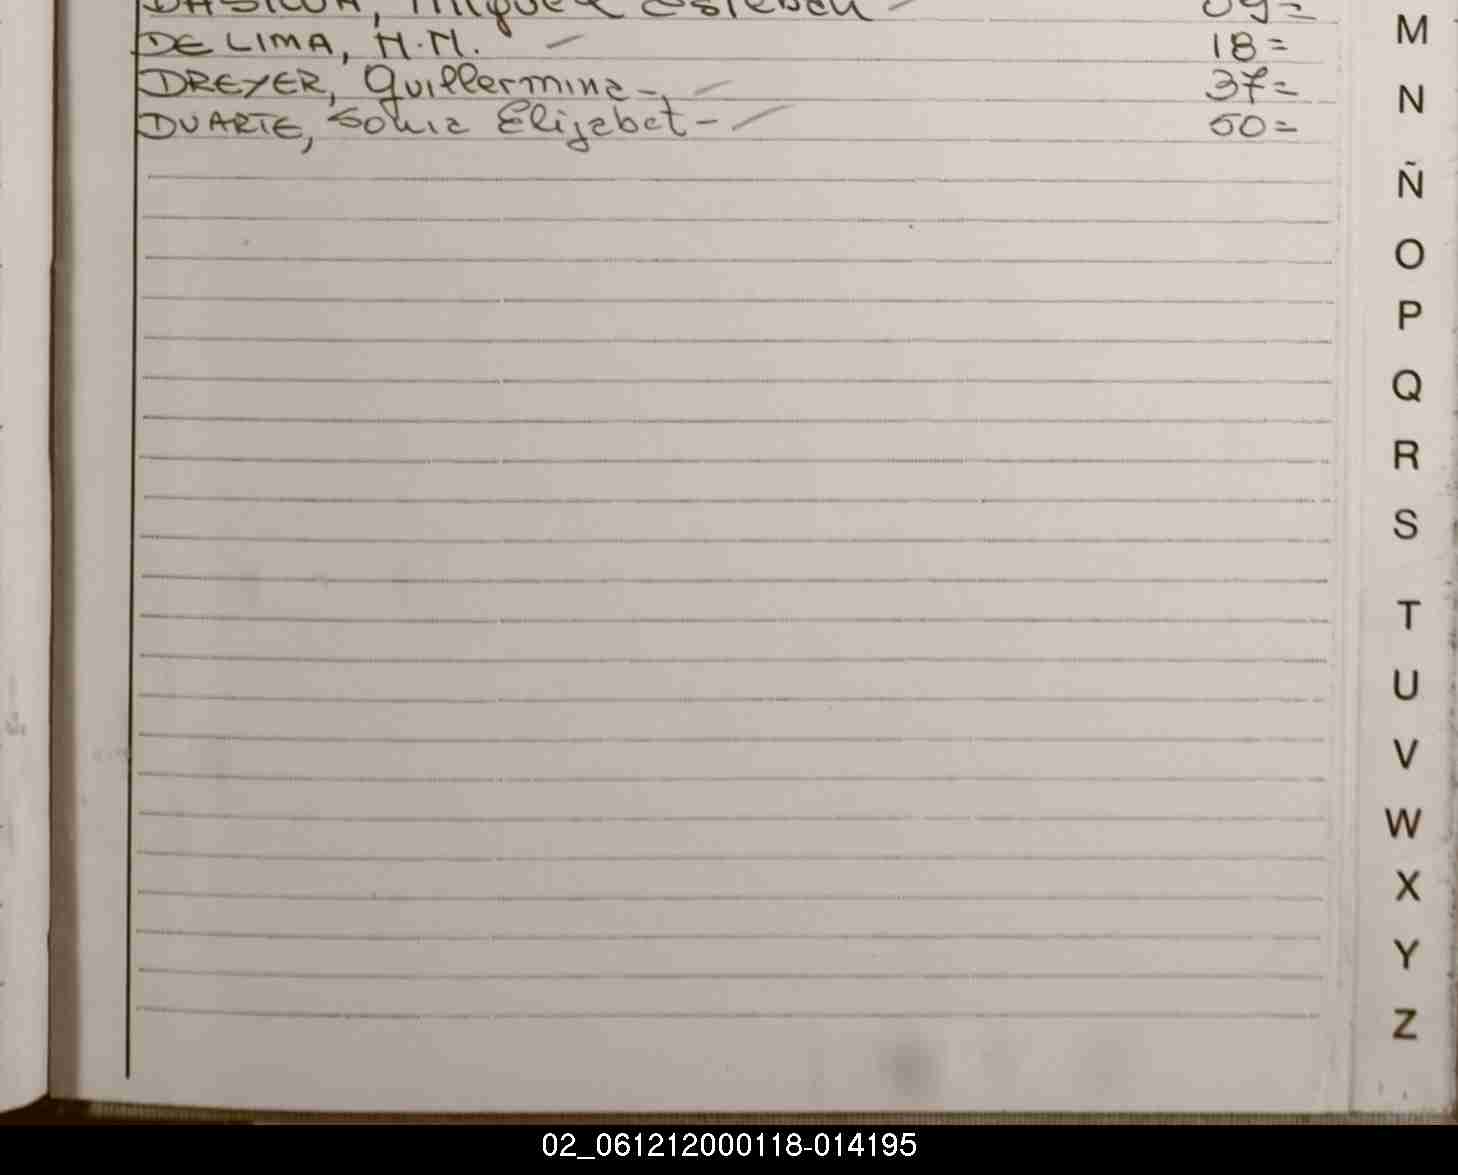 DASILVA, Miguel Esteban - 09=
DE LIMA, M.M. - 18=
DREYER, Guillermina - - 37=
DUARTE, Sonia Elizabet - - 50=
M
N
Ñ
O
P
Q
R
S
T
U
V
W
X
Y
Z
02_061212000118-014195